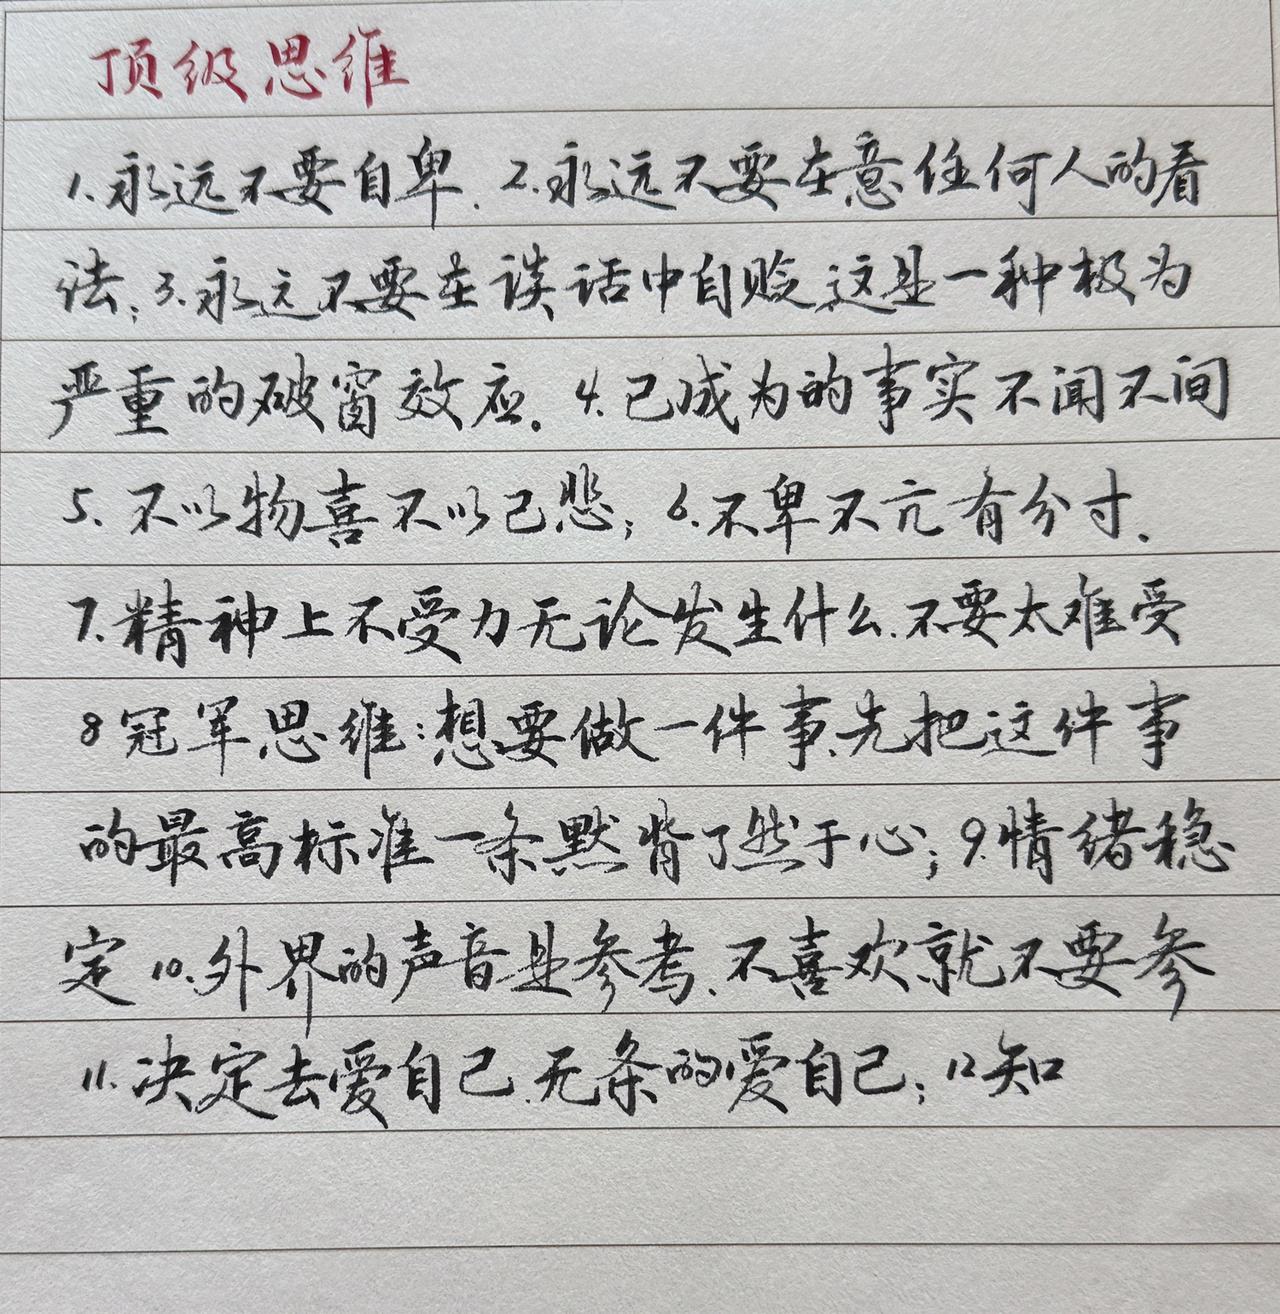 顶级思维
1.永远不要自卑.2.永远不要在意任何人的看
法;3.永远不要在谈话中自贬,这是一种极为
严重的破窗效应。4.已成为的事实不闻不间
5.不以物喜不以己悲;6.不卑不亢有分寸.
7.精神上不受力无论发生什么.不要太难受
8冠军思维:想要做一件事,先把这件事
的最高标准一条默背了然于心;9.情绪稳
定10.外界的声音是参考,不喜欢就不要参
11.决定去爱自己.无条的爱自己;12知